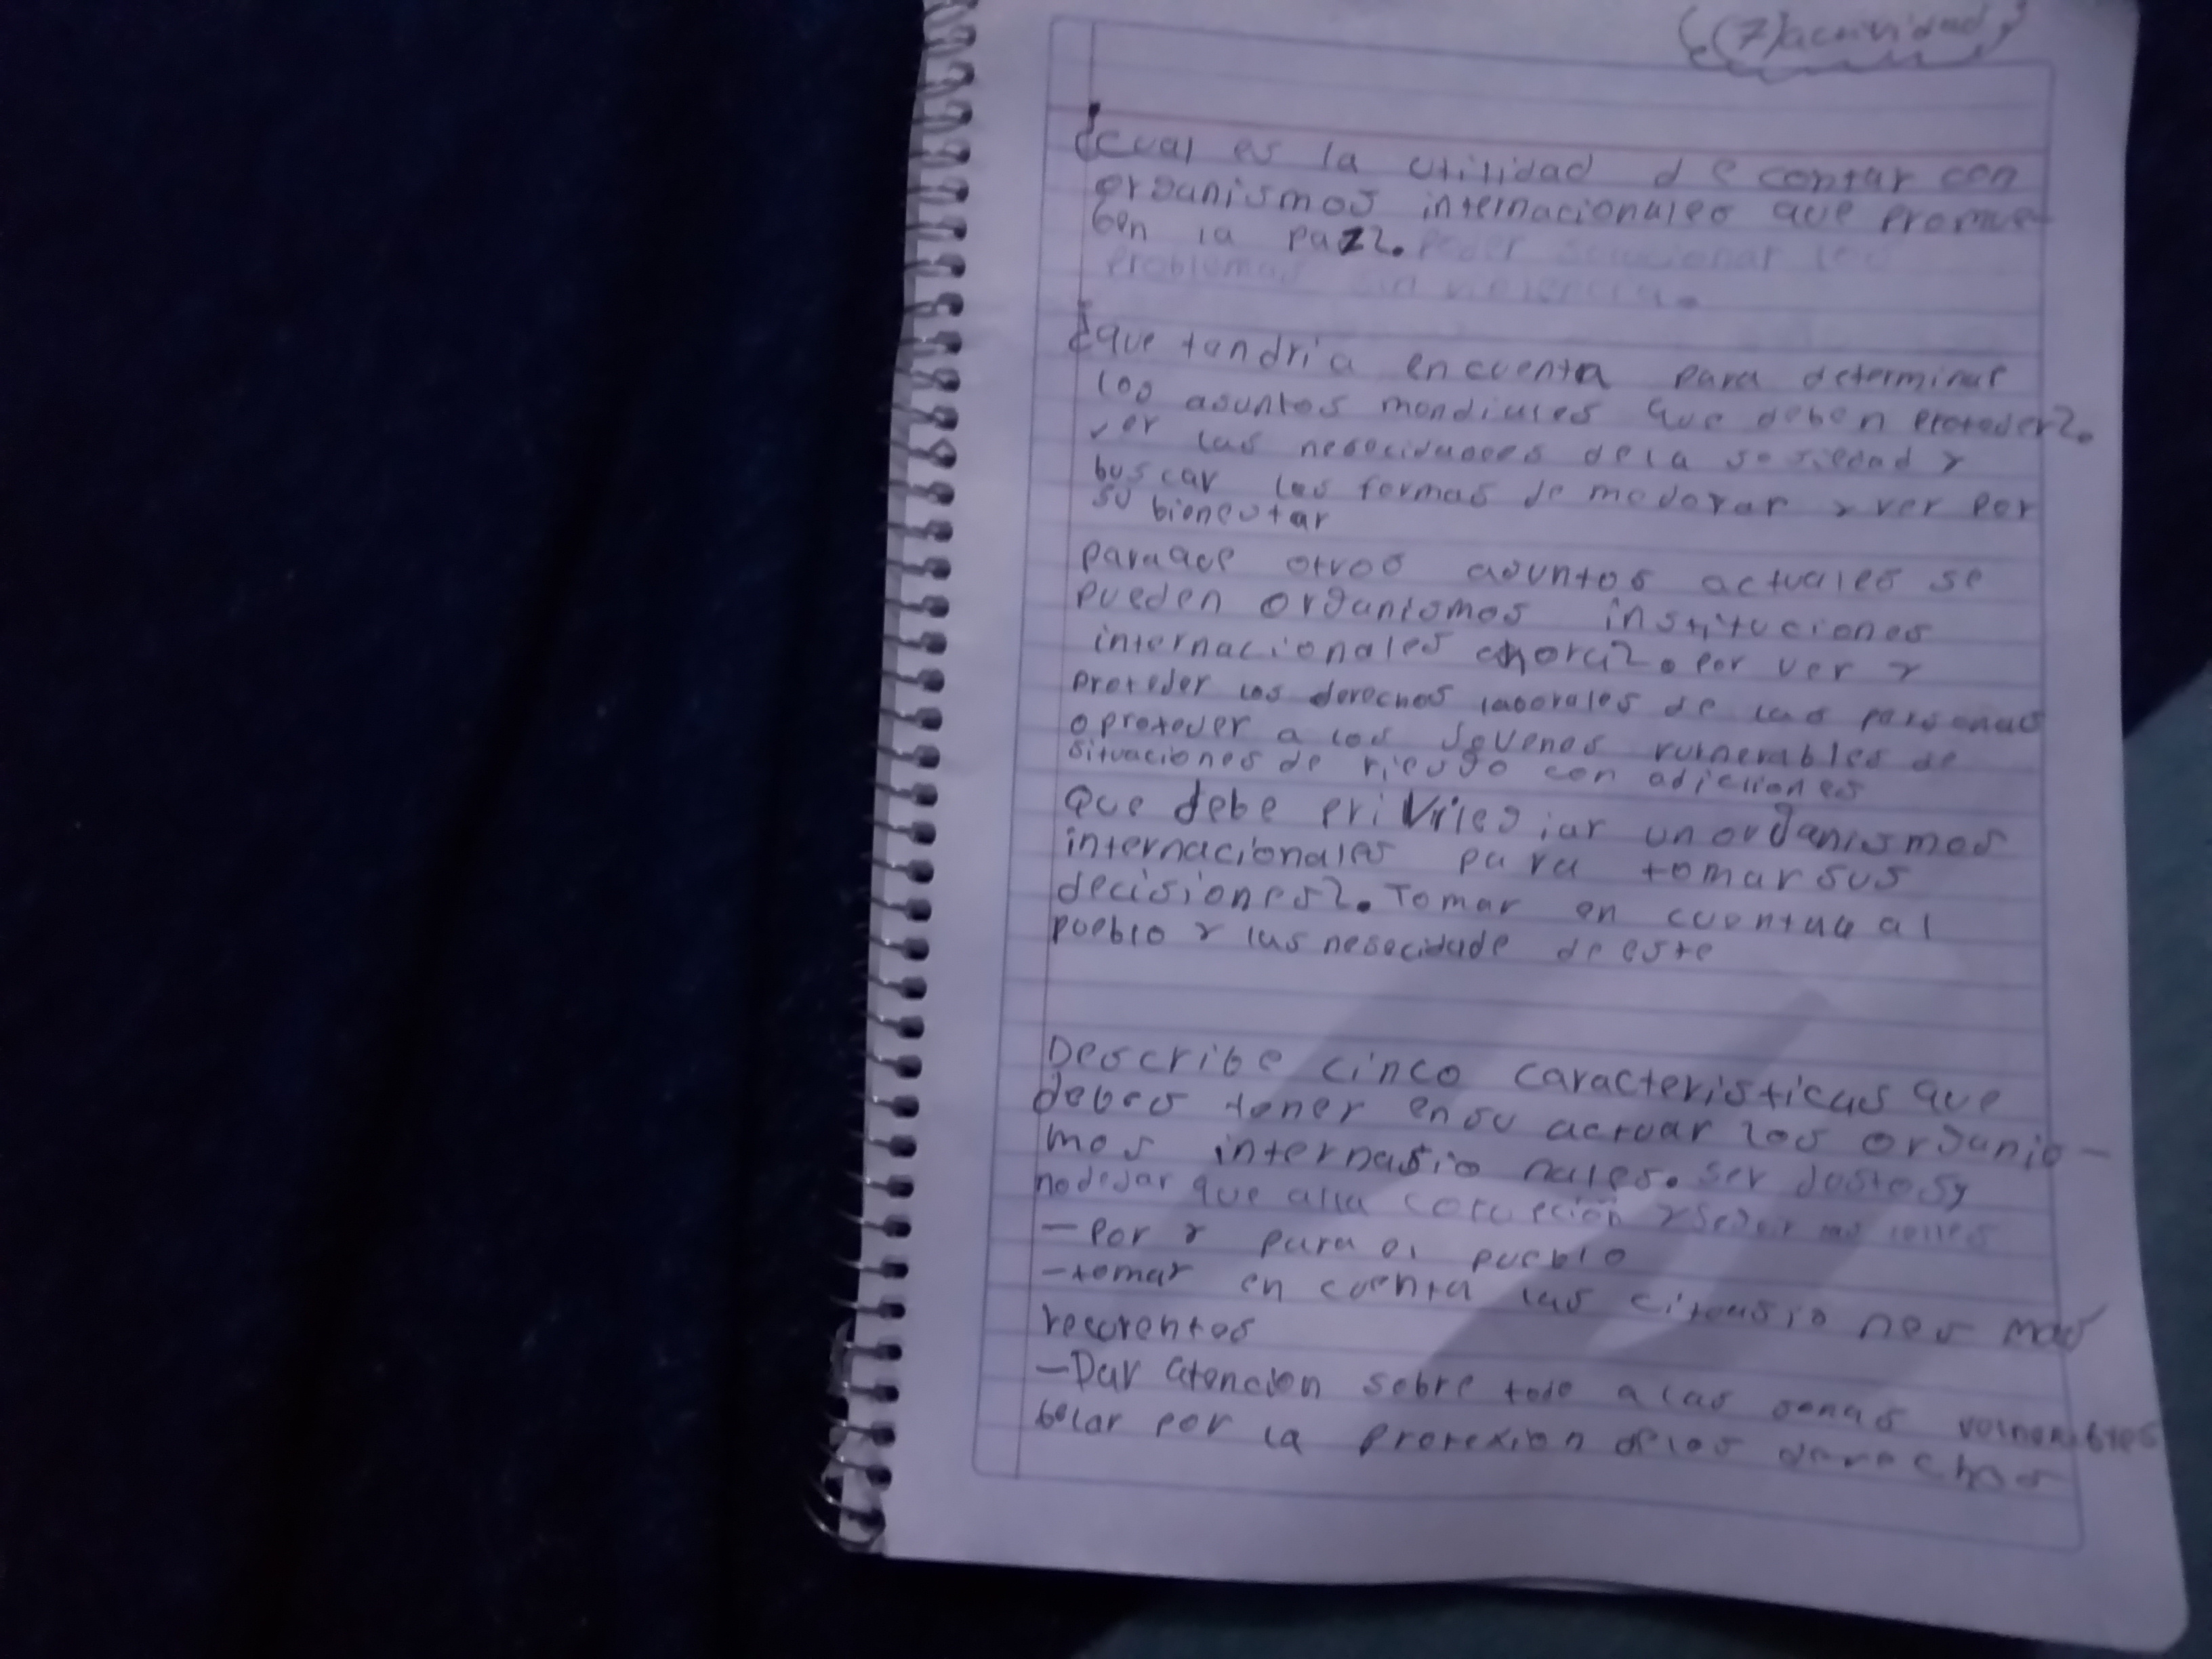 (7) actividad
¿cual es la utilidad de contar con
organismos internacionales que promue-
ben la paz?. Poder solucionar los
problemas sin violencia.
¿que tandria encuenta para determinar
los asuntos mondiales que deben proteder?.
ver las nesecidades dela sosiedad y
buscar las formas de medorar y ver por
su bienestar
paraque otros asuntos actuales se
pueden organismos instituciones
internacionales ahora?. por ver y
proteder los derechos laborales de las personas
o proteder a los jovenes vulnerables de
situaciones de riesgo con adicciones
Que debe priviriegiar un organismos
internacionales para tomar sus
decisiones?. Tomar en cuenta al
pueblo y las nesecidade de este
Describe cinco caracteristicas que
debes tener ensu actuar los organis-
mos internasionales. ser Justos y
nodejar que alla corrupcion y
-Por y para el pueblo
-tomar en cuenta las citausiones mas
recurentes
-Dar atencion sobre todo alas sonas vulnerables
belar por la protexion delos derechos